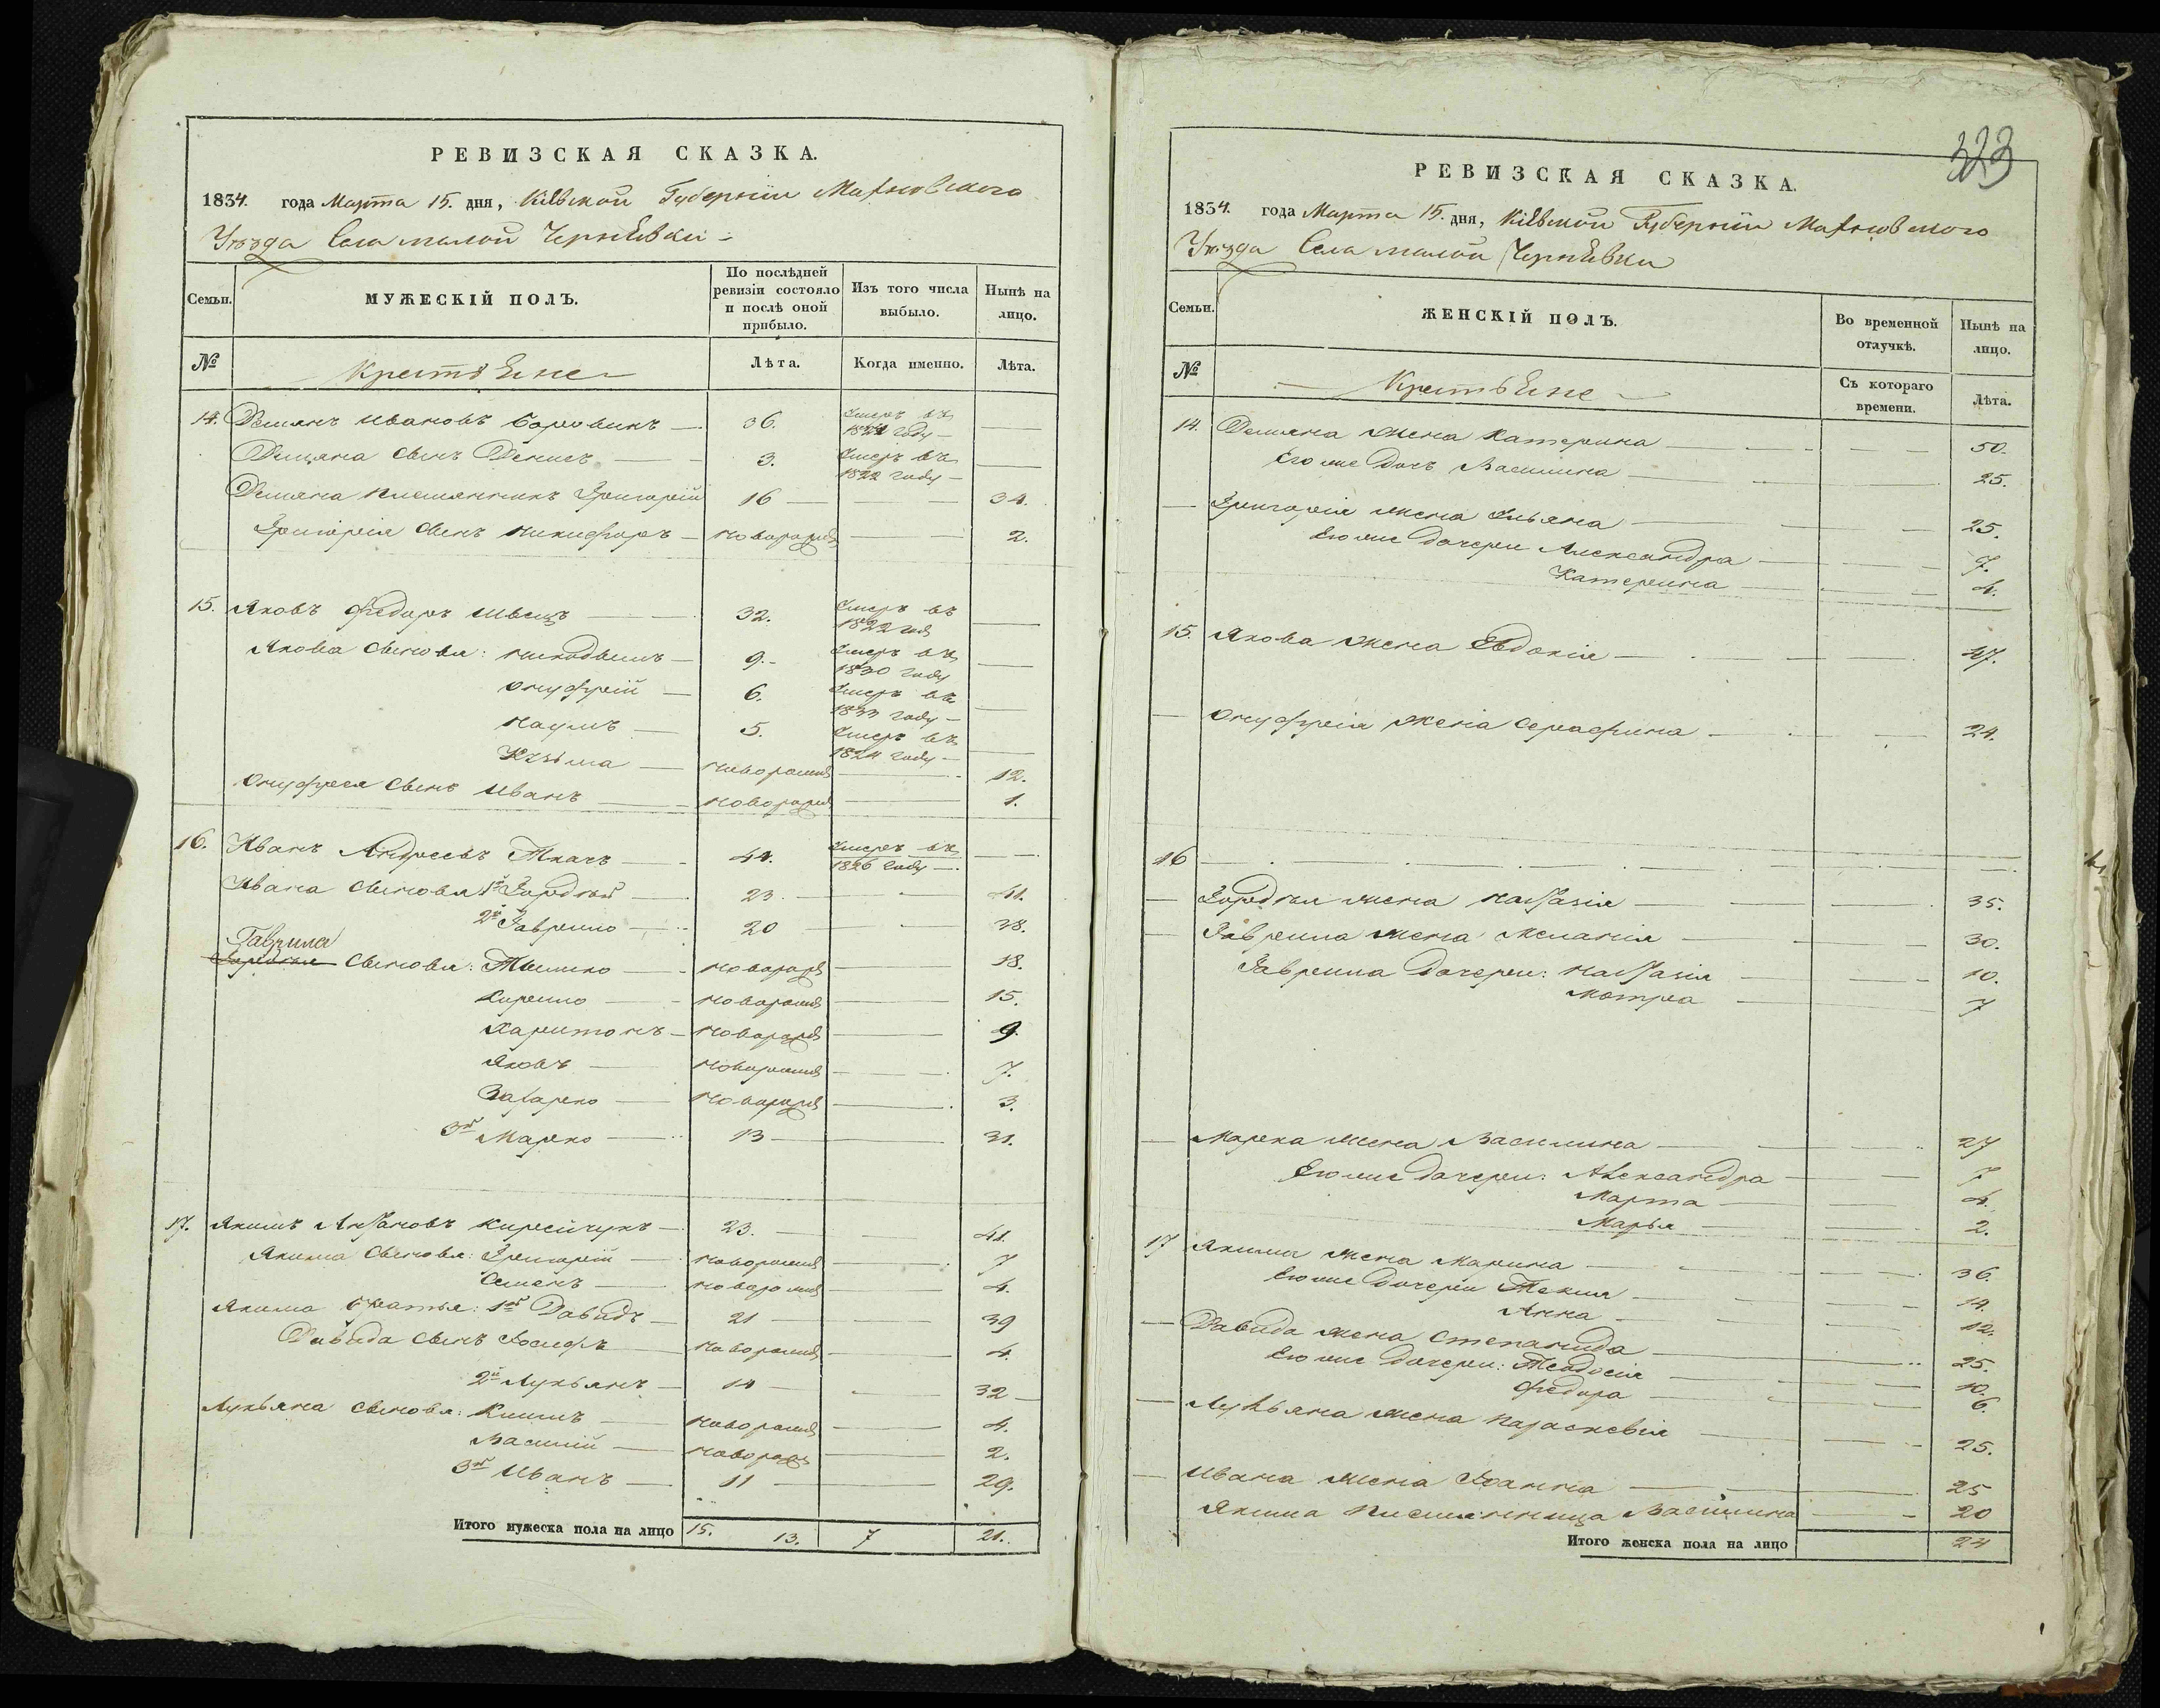 РЕВИЗСКАЯ СКАЗКА.
1834. года Марта 15. дня, Кіевской Губерніи Махновского
Уѣзда Села малой Чернѣвки
Семьи.
МУЖЕСКІЙ ПОЛЪ.
По послѣдней
ревизіи состояло
и послѣ оной
прибыло.
Изъ того числа
выбыло.
Нынѣ на
лицо.
№
Крестьяне
Лѣта.
Когда именно.
Лѣта.
14. Демянъ Ивановъ 36. Умеръ въ 1821 году
Демяна сынъ Денисъ 3. Умеръ въ 1822 году
Демяна племянникъ Григорій 16 34.
Григорія сынъ Никифоръ новорожд 2.
15. Яковъ Федоръ Швецъ 32. Умеръ въ 1822 год
Якова сыновья: Никодымъ 9. Умеръ въ 1830 году
Онуфрій 6. Умеръ въ 1833 году
Наумъ 5. Умеръ въ 1824 году
Кузьма новорожд 12.
Онуфрея сынъ Иванъ новорожд 1.
16. Иванъ Андреевъ Ткачъ 44. Умеръ въ 1826 году
Ивана сыновья 1й Гордѣй 23. 41.
2й Гаврило 20 38.
Гаврила
сыновья: Тымко новорожд 18.
Кирило новорожд 15.
Харитонъ новорожд 9.
Яковъ новорожд 7.
Захарко новорожд 3.
3й Марко 13 31.
17. Якимъ Антоновъ 23. 41.
Якима сыновья: Григорій новорожд 7
Семенъ новорожд 4.
Якима братья: 1й Давидъ 21 39
Давида сынъ Іосифъ новорожд 4.
2й Лукьянъ 14 32
Лукьяна сыновья: Климъ новорожд 4.
Василій новорожд 2.
3й Иванъ 11 29.
Итого мужеска пола на лицо 15. 13. 7 21.
323
РЕВИЗСКАЯ СКАЗКА.
1834. года Марта 15. дня, Кіевской Губерніи Махновского
Уѣзда Села малой Чернѣвки
Семьи.
ЖЕНСКІЙ ПОЛЪ.
Во временной
отлучкѣ.
Нынѣ на
лицо.
№
Крестьяне
Съ котораго
времени.
Лѣта.
14. Демяна жена Катерина 50.
Его же дочь Василина 25.
Григорія жена Ульяна 25.
Его же дочери Александра 7.
Катерина 4.
15. Якова жена Евдокія 47.
Онуфрія жена Серафима 24.
16
Гордѣя жена Настазія 35.
Гаврила жена Меланія 30.
Гаврила дочери: Настазія 10.
Мотря 7
Марка жена Василина 27
Его же дочери: Александра 7
Марта 4.
Марья 2.
17 Якима жена Марина 36.
Его же дочери Текля 14.
Анна 12.
Давида жена Степанида 25.
Его же дочери: Теодосія 10.
Федора 6.
Лукьяна жена Параскевія 25.
Ивана жена Іоанна 25
Якима племянница Василина 20
Итого женска пола на лицо 24